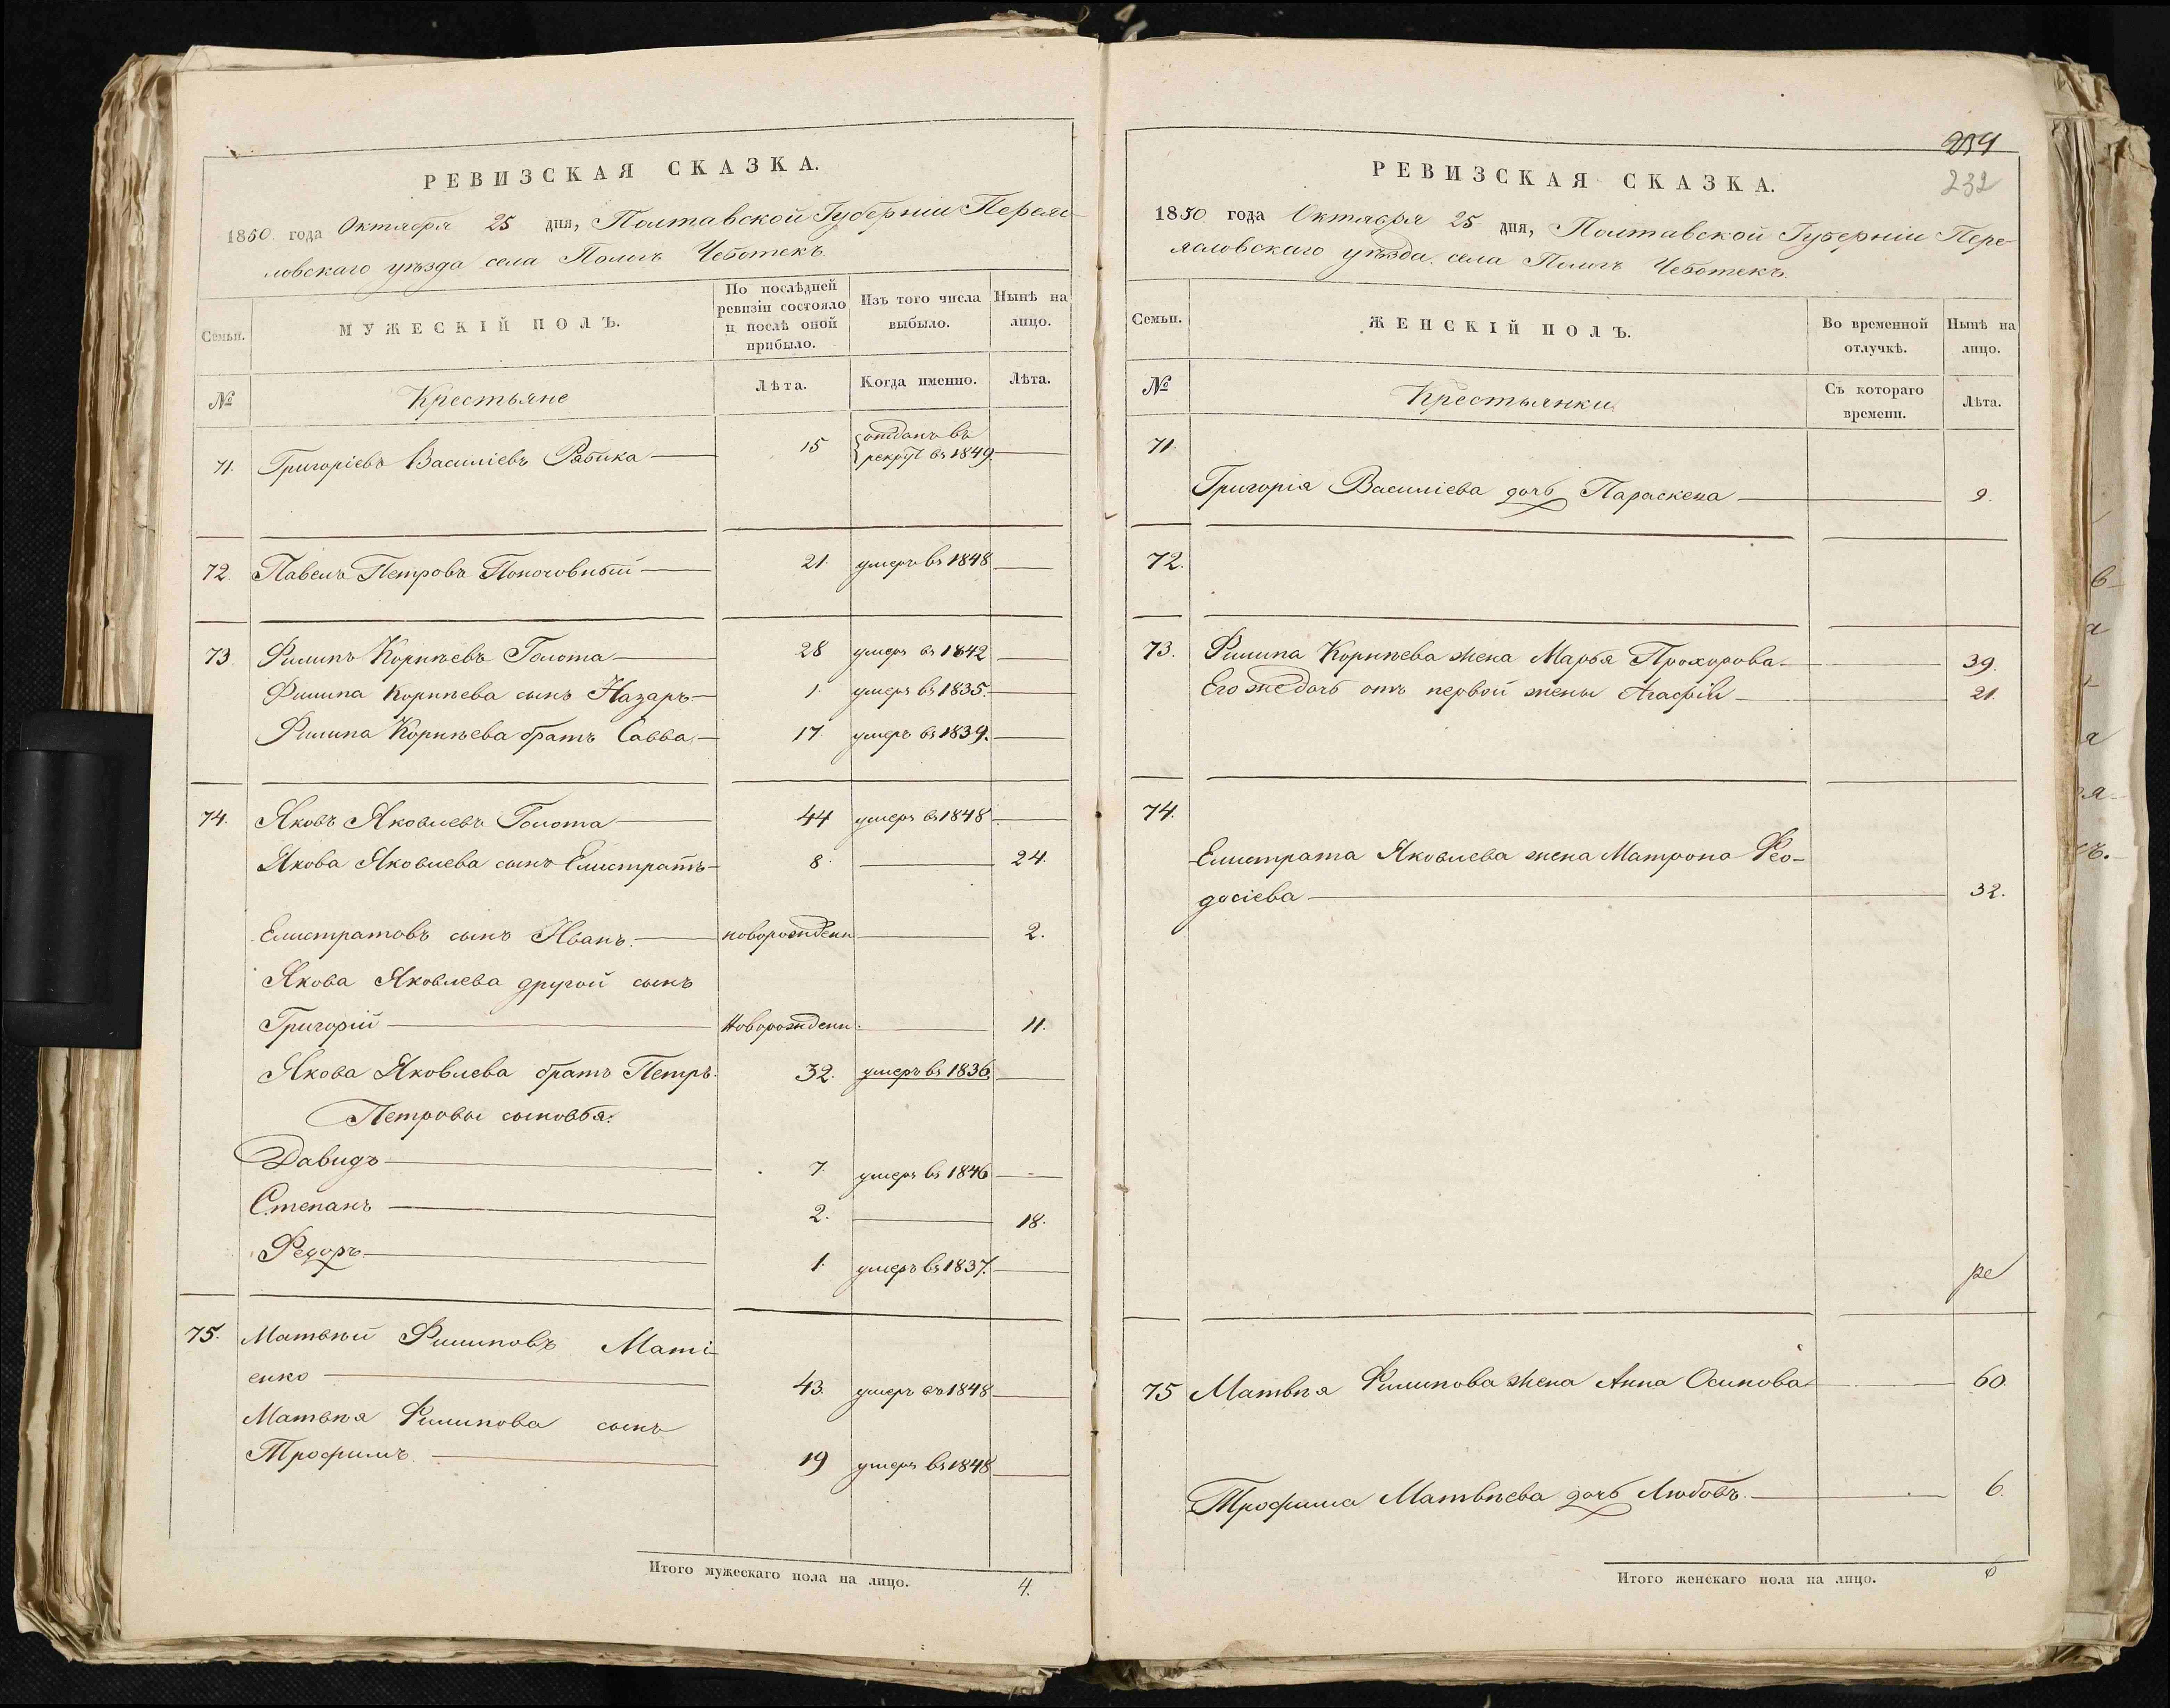 РЕВИЗСКАЯ СКАЗКА.
1850 года Октября 25 дня, Полтавской Губерніи Переяс-
ловскаго уѣзда села Пологъ Чеботекъ.
Семьи.
МУЖЕСКІЙ ПОЛЪ.
По послѣдней ревизіи состояло и послѣ оной прибыло.
Изъ того числа выбыло.
Нынѣ на лицо.
№
Крестьяне
Лѣта.
Когда именно.
Лѣта.
71. Григоріевъ Василіевъ Рябика 15 отданъ въ
рекрут въ 1849.
72. Павелъ Петровъ 21. умеръ въ 1848
73. Филипъ Корнѣевъ Голота 28 умеръ въ 1842
Филипа Корнѣева сынъ Назаръ 1. умеръ въ 1835.
Филипа Корнѣева братъ Савва 17. умеръ въ 1839.
74. Яковъ Яковлевъ Голота 44 умеръ въ 1848
Якова Яковлева сынъ Елистратъ 8. 24.
Елистратовъ сынъ Иванъ. новорожденн 2.
Якова Яковлева другой сынъ
Григорій Новорожденн. 11.
Якова Яковлева братъ Петръ. 32. умеръ въ 1836.
Петровы сыновья:
Давидъ 7. умеръ въ 1846
Степанъ 2. 18.
Федоръ 1. умеръ въ 1837.
75. Матвѣй Филиповъ Маті-
енко 43. умеръ въ 1848
Матвѣя Филипова сынъ
Трофимъ 19 умеръ въ 1848
Итого мужескаго пола на лицо. 4.
234
232
РЕВИЗСКАЯ СКАЗКА.
1850 года Октября 25 дня, Полтавской Губерніи Пере-
ясловскаго уѣзда села Пологъ Чеботекъ.
Семьи.
ЖЕНСКІЙ ПОЛЪ.
Во временной отлучкѣ.
Нынѣ на лицо.
№
Крестьянки.
Съ котораго времени.
Лѣта.
71.
Григорія Василіева дочь Параскева 9.
72.
73. Филипа Корнѣева жена Марья Прохорова 39.
Его же дочь отъ первой жены Агафія 21.
74.
Елистрата Яковлева жена Матрона Фео-
досіева 32.
ре
75 Матвѣя Филипова жена Анна Осипова 60.
Трофима Матвѣева дочь Любовъ. 6.
Итого женскаго пола на лицо. 6